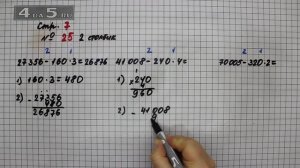 4 5 да
Стр. 7
№ 25 2 столбик
2 1
27356 - 160 · 3 = 26876
1) 160 · 3 = 480
2) - 27356
480
26876
2 1
41008 - 240 · 4 =
1) × 240
4
960
2) - 41008
2 1
70005 - 320 · 2 =